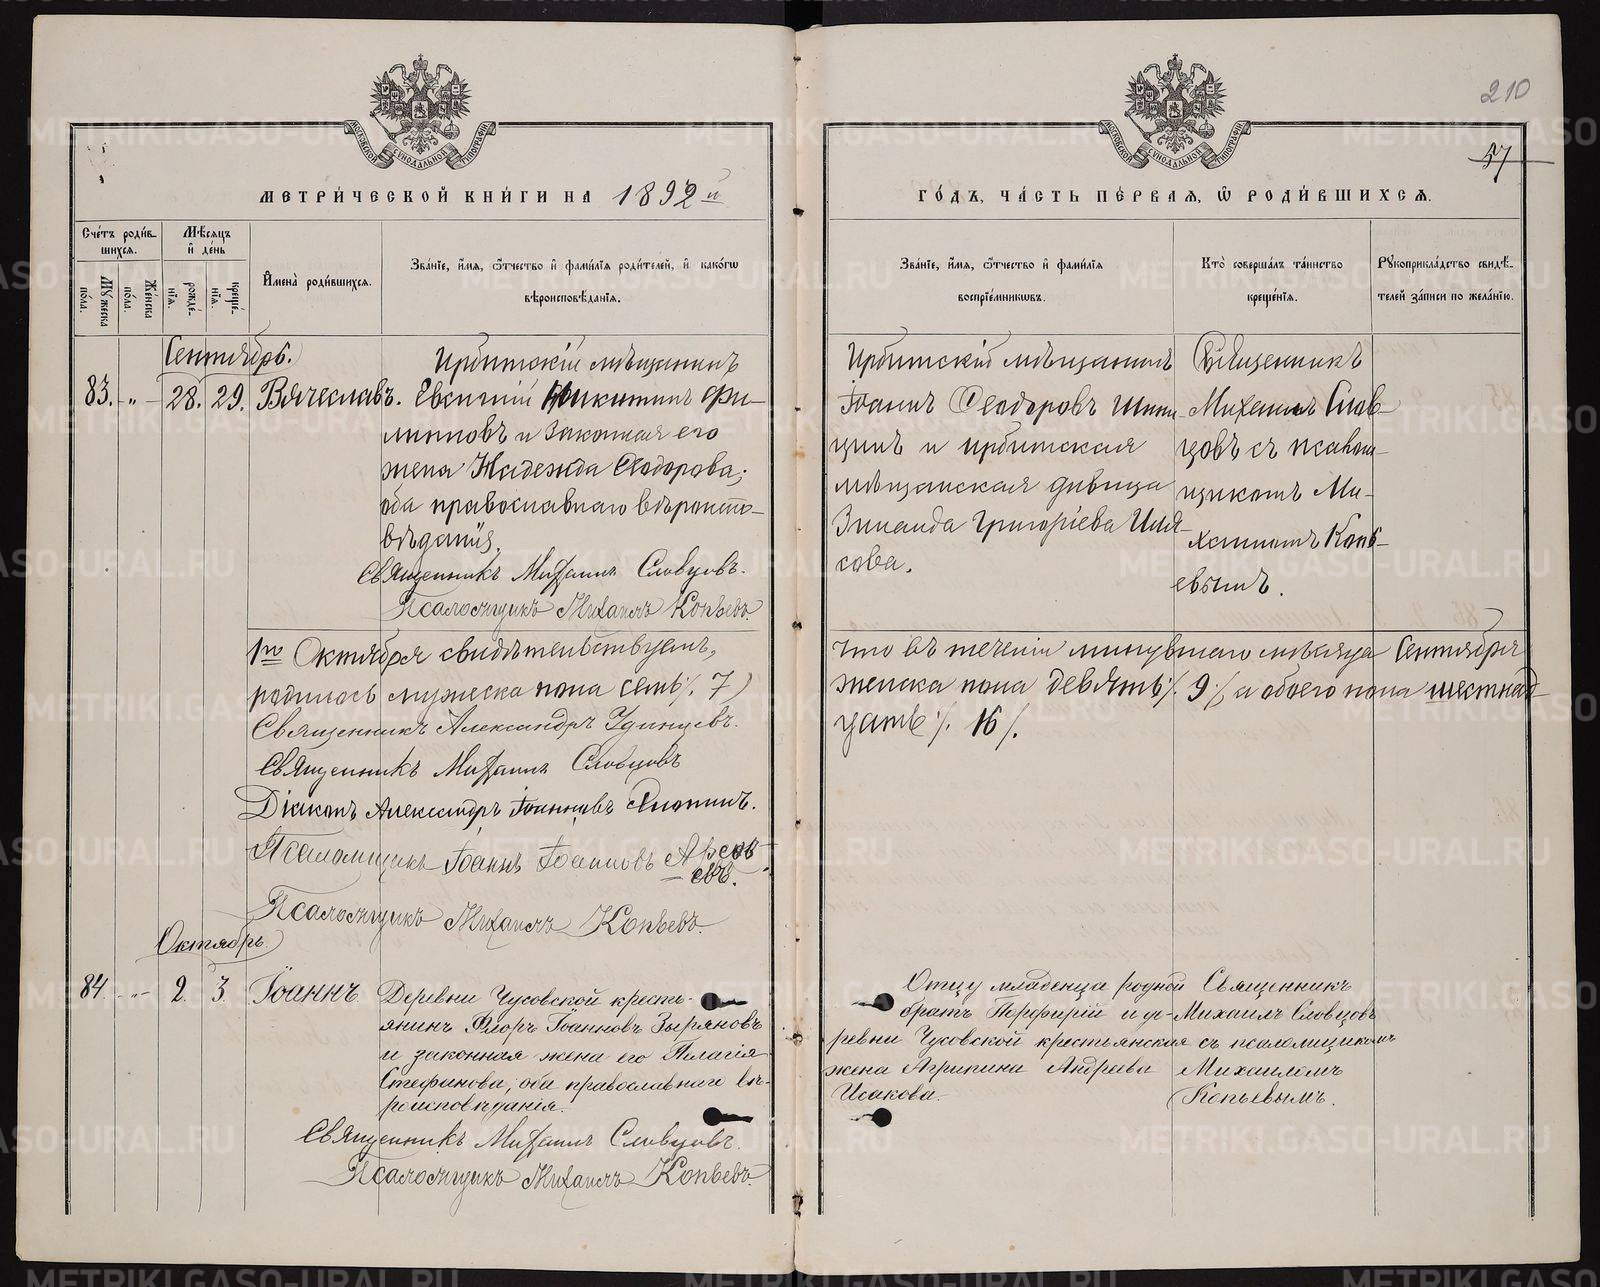 210
57
МОСКОВСКОЙ СѴНОДАЛЬНОЙ ТИПОГРАФІИ
МОСКОВСКОЙ СѴНОДАЛЬНОЙ ТИПОГРАФІИ
МЕТРИ́ЧЕСКОЙ КНИ́ГИ НА 1892 й
ГО́ДЪ, ЧА́СТЬ ПЕ́РВАЯ, Ѡ РОДИ́ВШИХСЯ.
Сче́тъ роди́вшихся.
Му́жеска по́ла.
Же́нска по́ла.
Мѣ́сяцъ и҆ де́нь
рожде́нїя.
креще́нїя.
И҆мена̀ роди́вшихся.
Зва́нїе, и҆́мя, ѻ҆́тчество и҆ фами́лїя роди́телей, и҆ како́гѡ
вѣроисповѣ́данїя.
Зва́нїе, и҆́мя, ѻ҆́тчество и҆ фами́лїя
воспрїе́мникѡвъ.
Кто̀ соверша́лъ та́инство
креще́нїя.
Рꙋкоприкла́дство свидѣ́телей за́писи по жела́нїю.
Сентябрь.
83. „ 28. 29. Вячеславъ.
Ирбитскій мѣщанинъ
Евгеній Никитинъ Фи-
липповъ и законная его
жена Надежда Ѳеодорова;
оба православнаго вѣроиспо-
вѣданія,
Священникъ Михаилъ Словцовъ.
Псаломщикъ Михаилъ Копьевъ.
Ирбитскій мѣщанинъ
Іоаннъ Ѳеодоровъ
и ирбитская
мѣщанская дѣвица
Зинаида Григоріева
сова.
Священникъ
Михаилъ Слов-
цовъ съ псалом-
щикомъ Ми-
хаиломъ Копь-
евымъ.
1го Октября свидѣтельствуемъ,
родилось мужеска пола семь /. 7)
Священникъ Александръ Удинцевъ.
Священникъ Михаилъ Словцовъ
Діаконъ Александръ Іоанновъ
Псаломщикъ Іоаннъ Іоанновъ
Псаломщикъ Михаилъ Копьевъ.
что въ теченіи минувшаго мѣсяца Сентября
женска пола девять /. 9 /, а обоего пола шестнад-
цать /. 16 /.
Октябрь.
84. „ 2. 3. Іоаннъ.
Деревни Чусовской кресть-
янинъ Флоръ Іоанновъ Зыряновъ
и законная жена его Пелагія
Стефанова, оба православнаго вѣ-
роисповѣданія.
Священникъ Михаилъ Словцовъ.
Псаломщикъ Михаилъ Копьевъ.
Отцу младенца родной
братъ Порфирій и де-
ревни Чусовской крестьянская
жена Агрипина Андреева
Исакова.
Священникъ
Михаилъ Словцовъ
съ псаломщикомъ
Михаиломъ
Копьевымъ.
METRIKI.GASO-URAL.RU